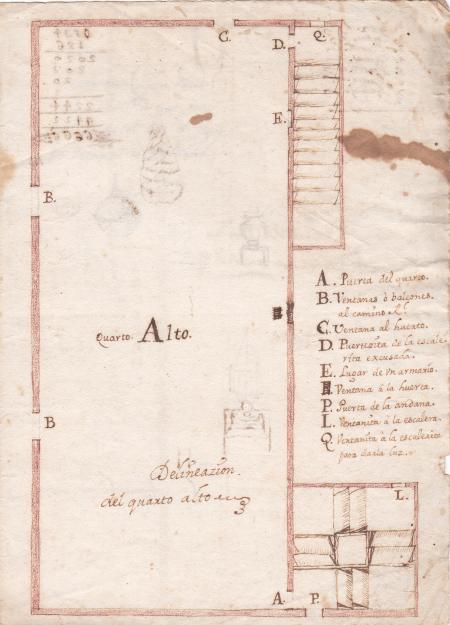 C.
D.
Q.
E.
B.
A. Puerta del quarto.
B. Ventanas ò balcones
al camino Rl.
C. Ventana al huerto.
D. Puertezita de la escale-
rita excusada.
E. Lugar de un armario.
Ventana à la huerta.
P. Puerta de la andana.
L. Ventanita à la escalera.
Q. Ventanita à la escalerita
para darla luz.
Quarto Alto.
B
Delineazion
del quarto alto
L.
A.
P.